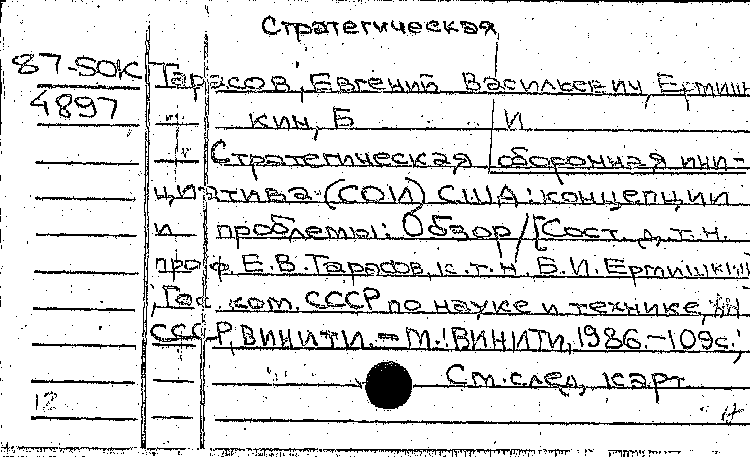 Стратегическая
87-SOK Тарасов, Евгений Васильевич, Ермиш-
4897 кин, Б И
Стратегическая оборонная ини-
циатива (СОИ) США: концепции
и проблемы: Обзор/[Сост. д.т.н.
проф. Е.В.Тарасов, к.т.н. Б.И.Ермишкин
; Гос. ком. СССР по науке и технике, АН
СССР, ВИНИТИ. - М.: ВИНИТИ, 1986. - 109с.;
См. след. карт
12